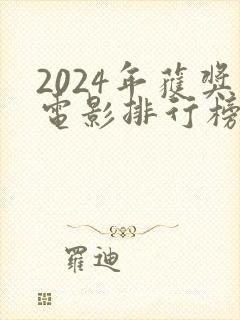 2024年獲獎
電影排行榜
羅迪